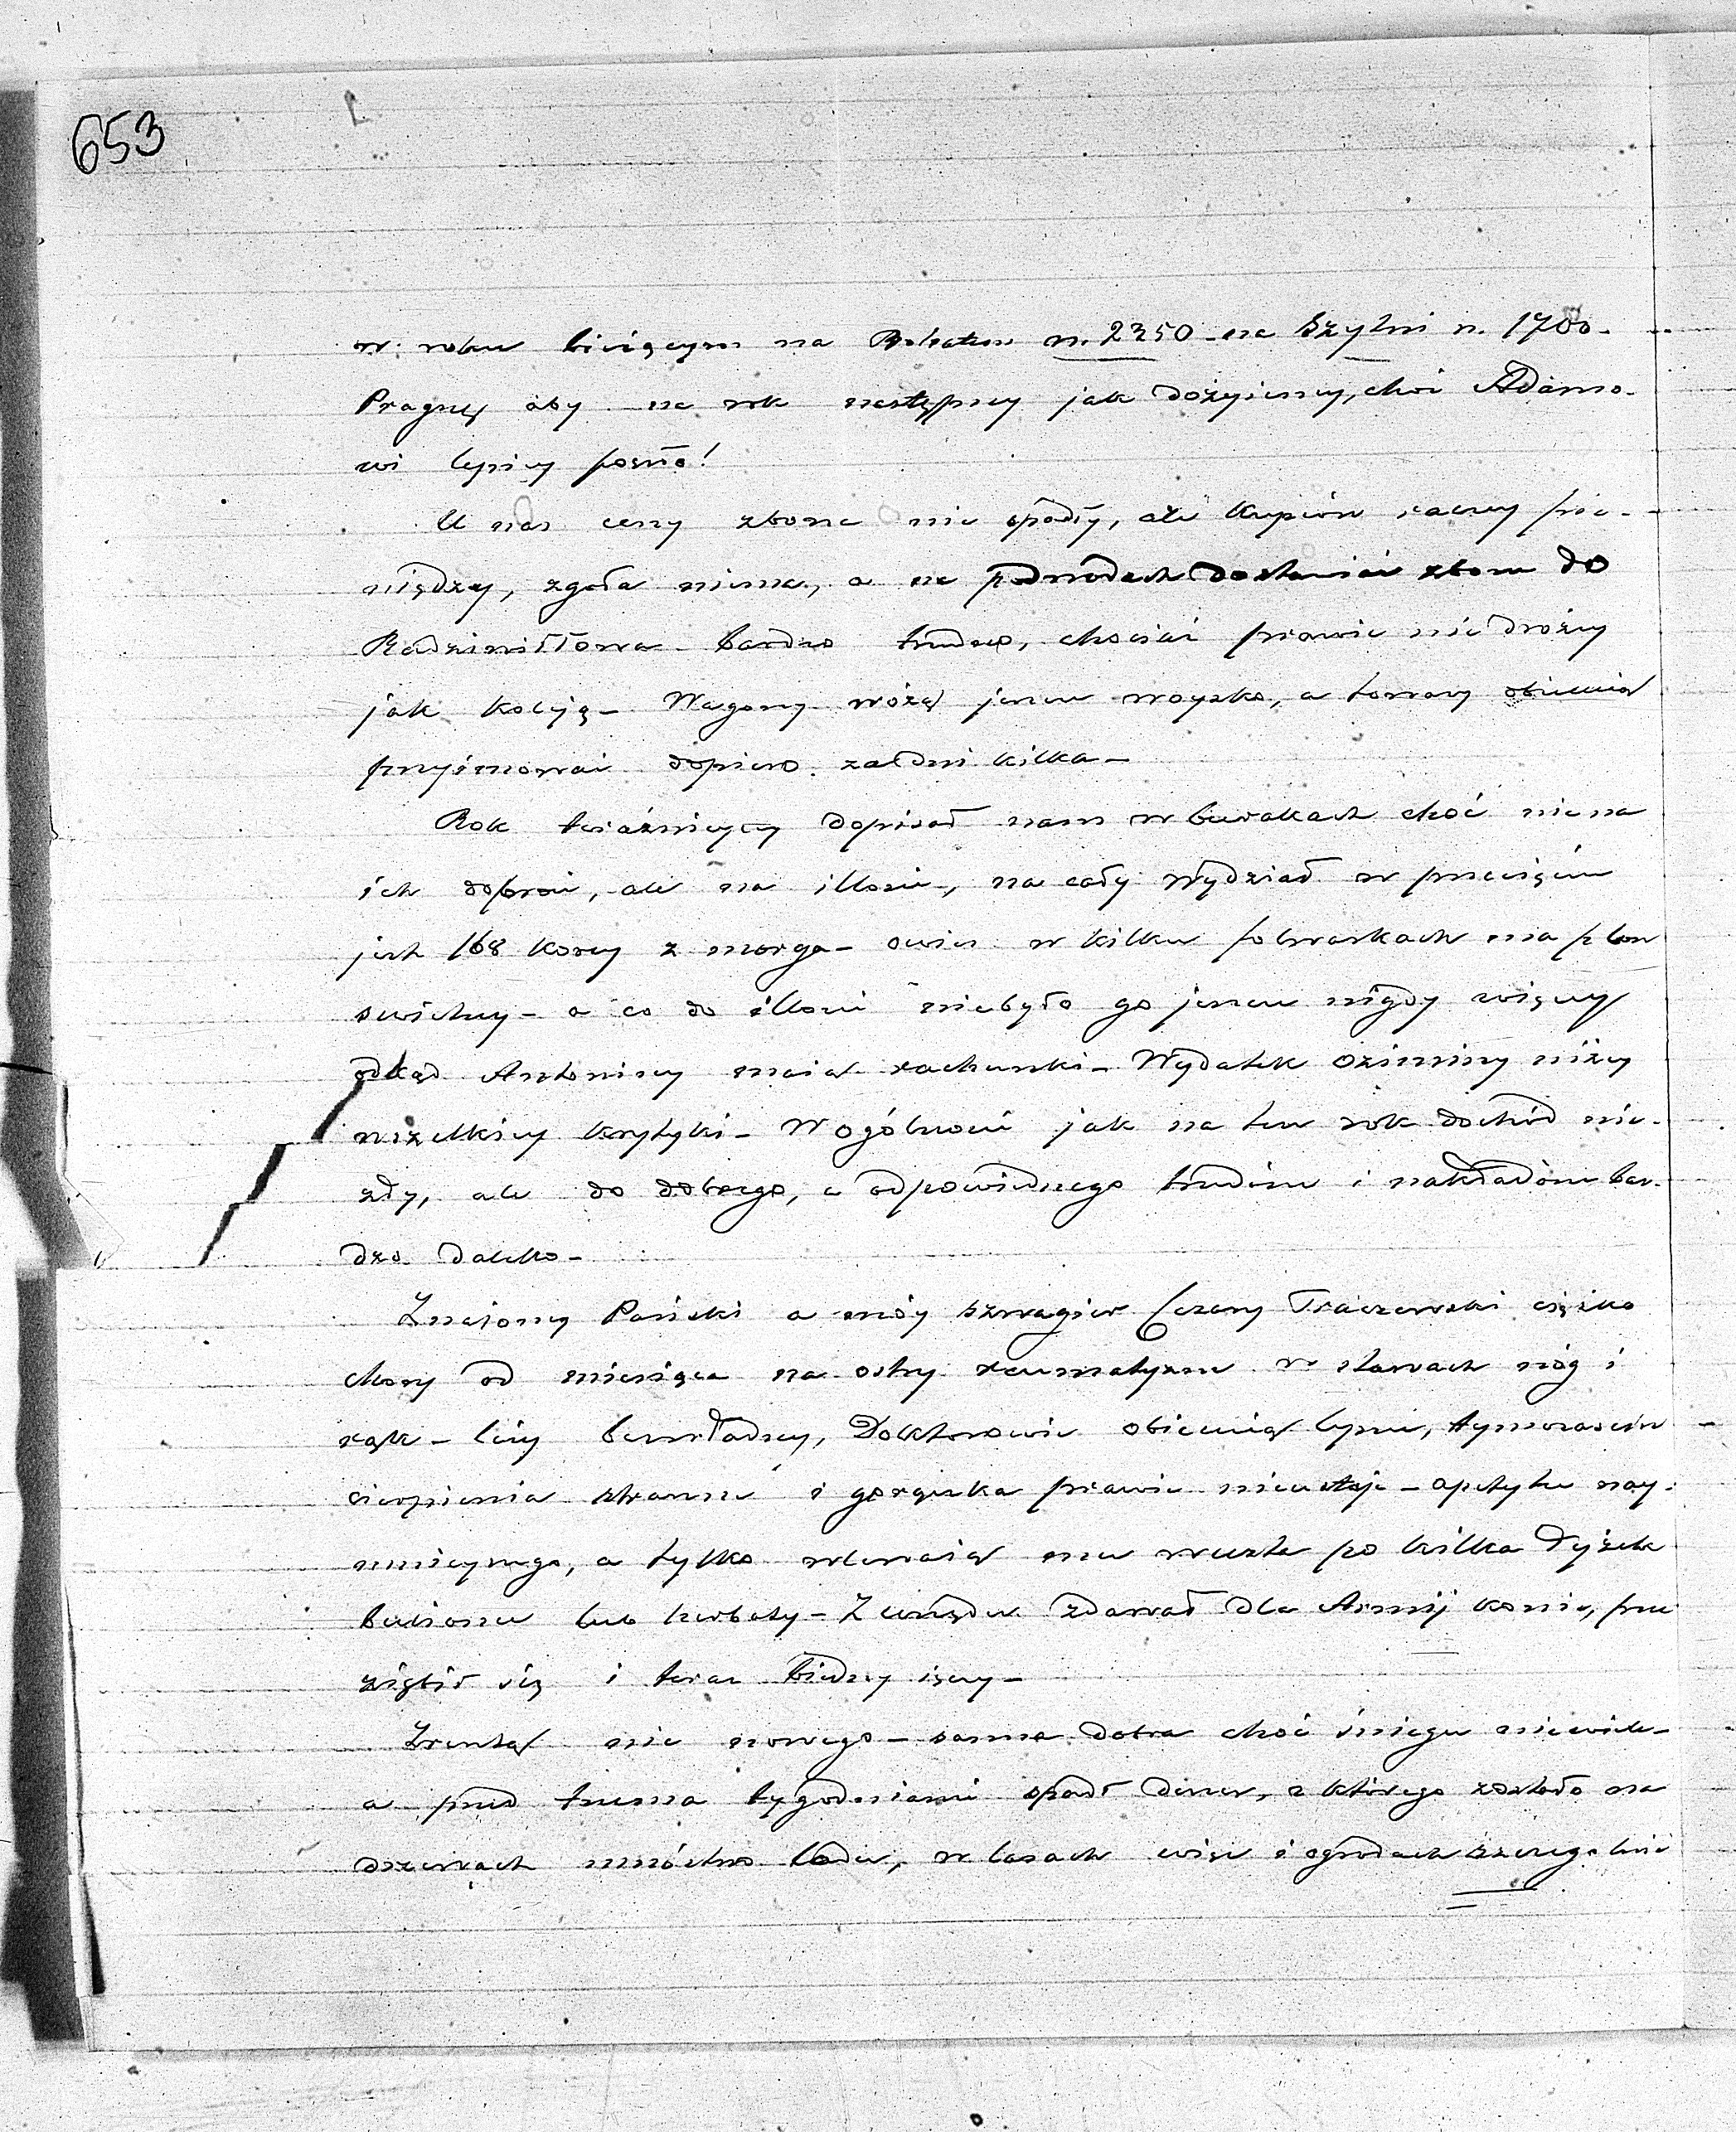 653
w roku bieiącym na r. 2350 na Szytni r. 1700.
Pragnę aby na rok następny jak dożyiemy, choć Adamo-
wi lepiey poszło!
U nas ceny zboża nie spadły, ale kupców raczey pie-
niędzy, zgoła niema, a na podwodach dostawiać zboże do
Radziwiłłowa bardzo trudno, chociaż prawie nie drożey
jak koleją – Wagony wożą jeszcze woysko, a towary obiecuią
przyimować dopiero za dni kilka –
Rok teraźnieyszy dopisał nam w burakach choć nie na
ich dobroci, ale na illości, na cały wydział w przecięciu
jest 168 korcy z morga – owies w kilku folwarkach ma plon
świetny – a co do illości niebyło go jeszcze nigdy więcey
odkąd Antoniny maią rachunki – Wydatek oziminy niżey
wszelkiey krytyki – W ogólności jak na ten rok dochód nie-
zły, ale do dobrego, a odpowiednego trudom i nakładom bar-
dzo daleko –
Znajomy Pański a móy szwagier Cezary Traczewski ciężko
chory od miesiąca na ostry reumatyzm w stawach nóg i
rąk – leży bezwładny, Doktorowie obiecuią lepsze, tymczasem
cierpienia straszne i gorączka prawie nieustaje – apetytu nay-
mnieyszego, a tylko wlewaią mu w usta po kilka łyżek
bulionu lub herbaty – Z urzędu zdawał dla Armij konie, prze
ziębił się i teraz biedny ięczy –
Zresztą nic nowego – sanna dobra choć śniegu niewiele –
a przed trzema tygodniami spadł deszcz, z którego zostało na
drzewach mnóstwo lodu, w lasach więc i ogrodach szczególnie